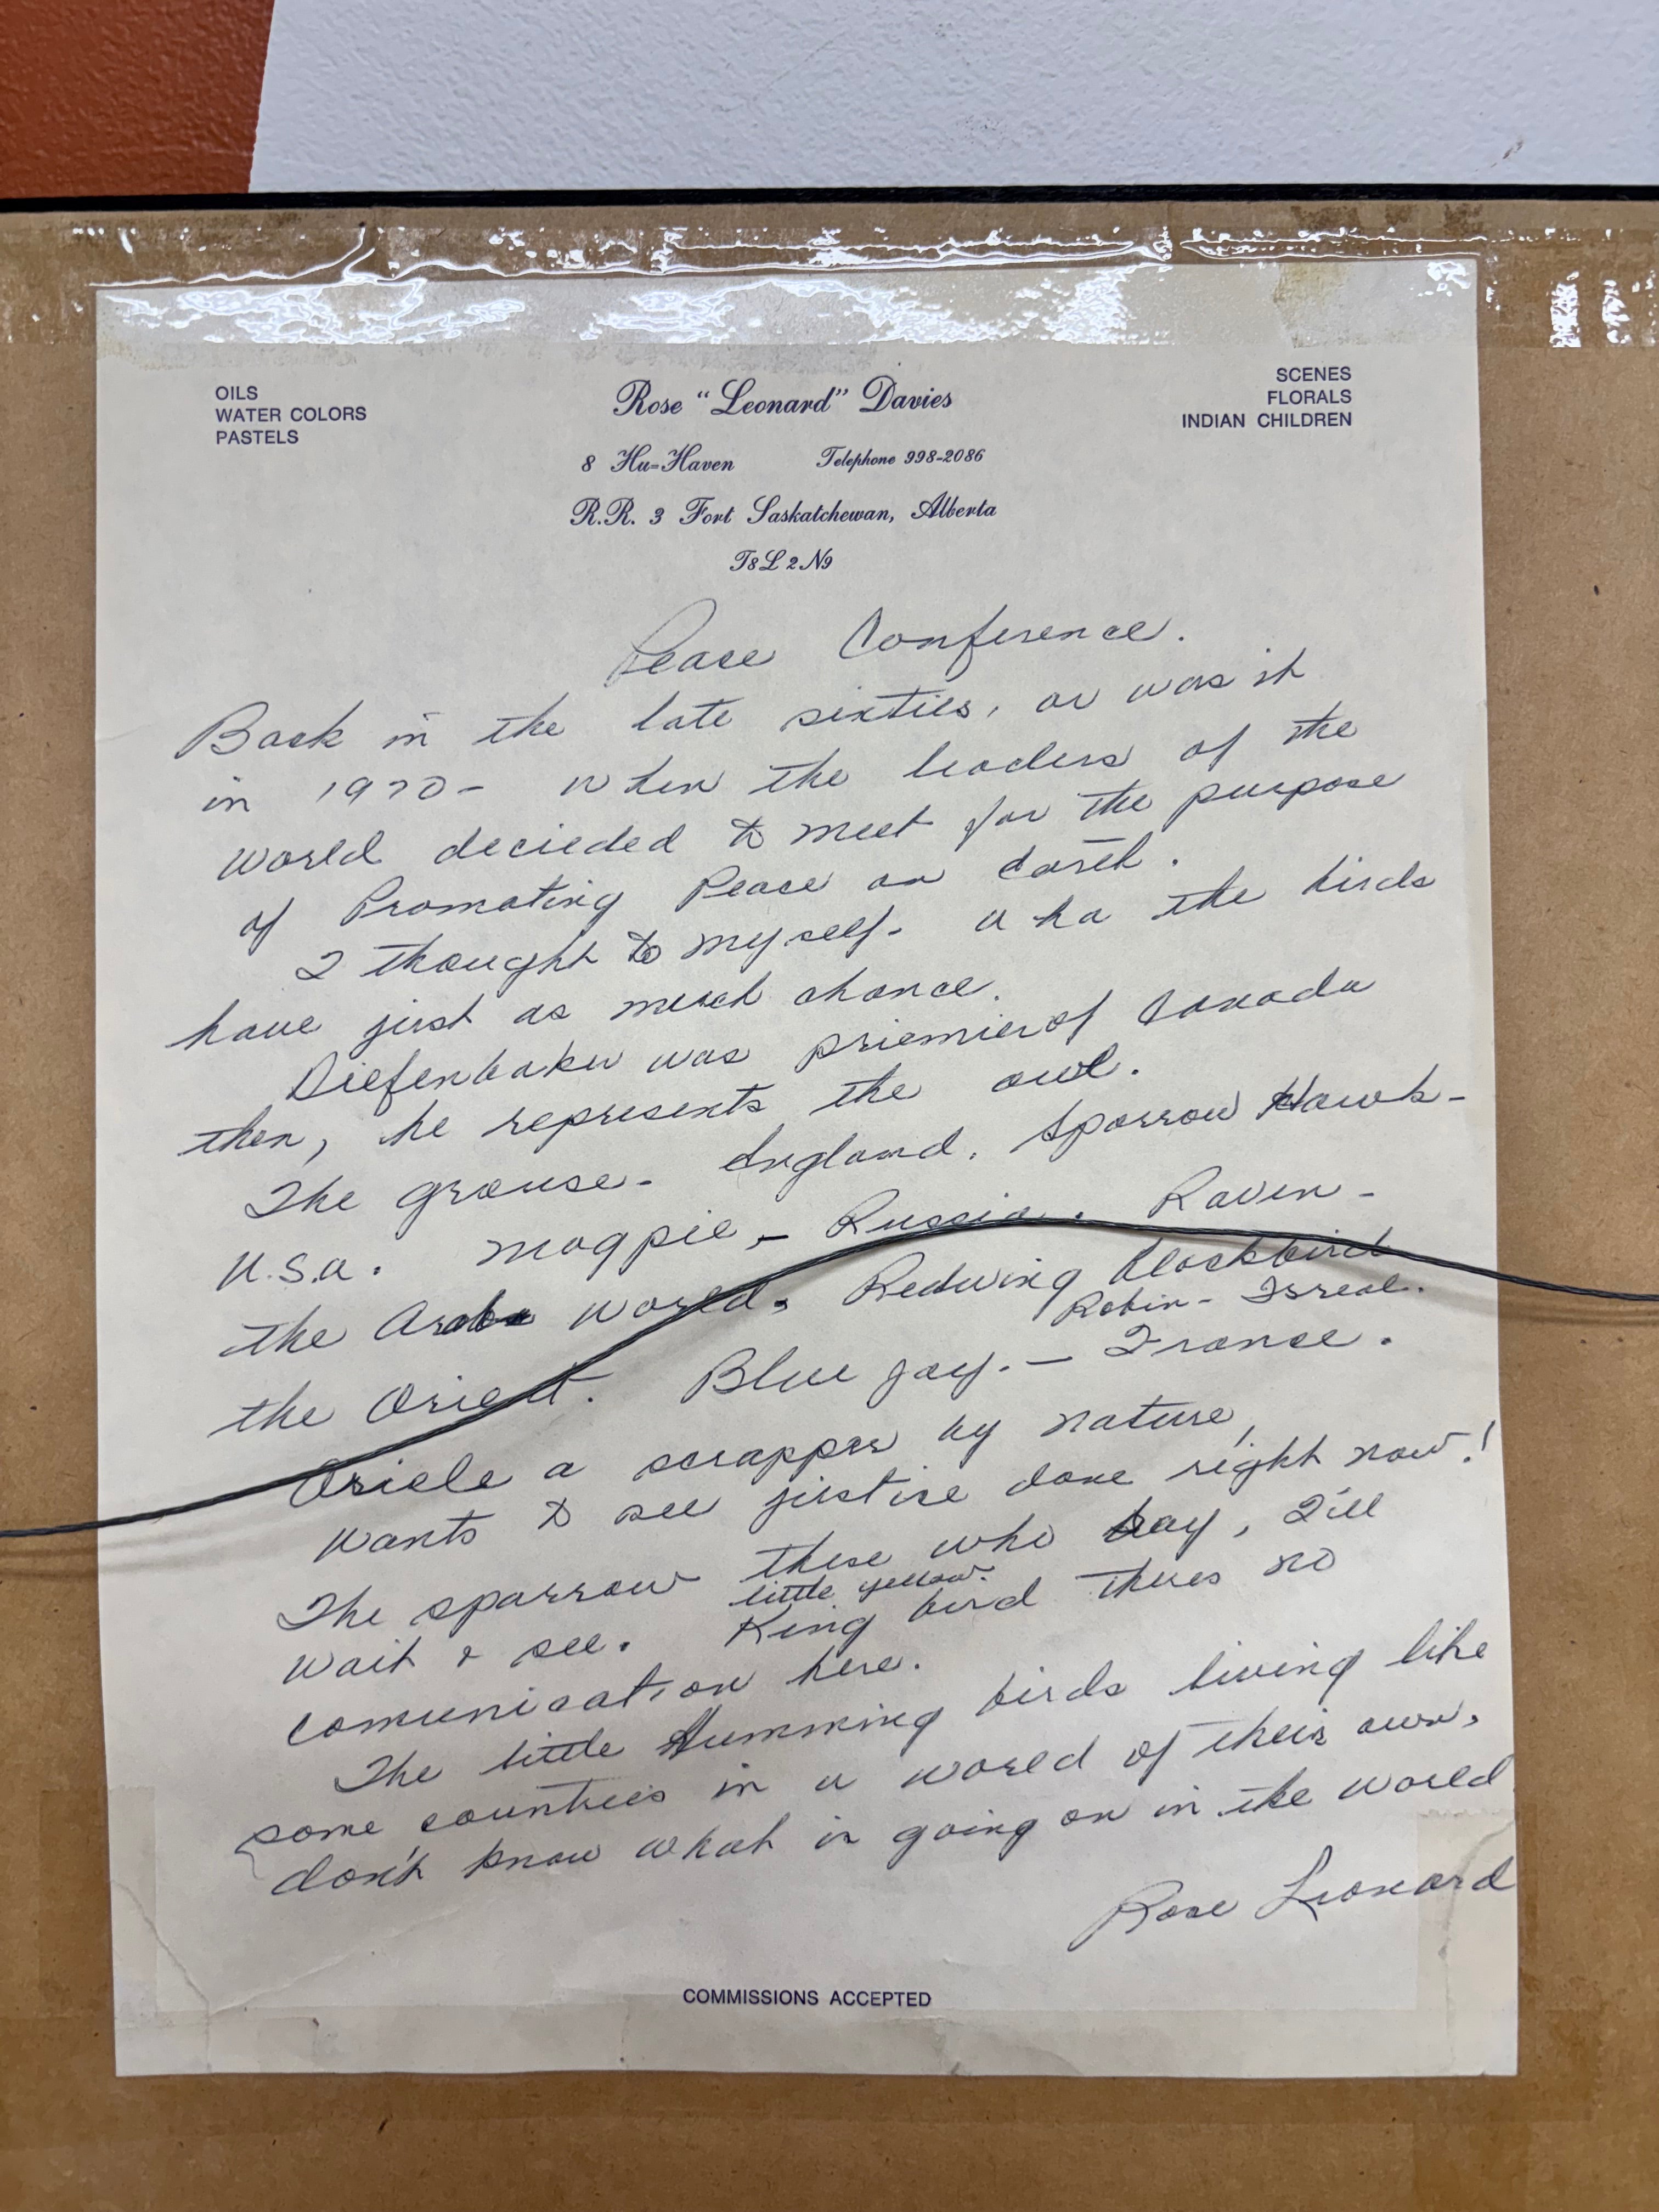 OILS
WATER COLORS
PASTELS
Rose "Leonard" Davies
8 Hu-Haven Telephone 998-2086
R.R. 3 Fort Saskatchewan, Alberta
T8L 2N9
SCENES
FLORALS
INDIAN CHILDREN
Peace Conference.
Back in the late sixties, or was it
in 1970 - when the leaders of the
world decieded to meet for the purpose
of Promoting Peace on Earth.
I thought to myself - a ha the birds
have just as much chance.
Diefenbaker was priemier of Canada
then, he represents the owl.
The grouse - England. Sparrow Hawk -
U.S.A. Magpie - Russia. Raven -
the Arab world. Redwing blackbird
Robin - Isreal.
the Orient. Blue jay. - France.
Oriele a scrapper by nature,
wants to see justise done right now!
The sparrow these who say, I'll
wait & see. little yellow King bird theres no
comunication here.
The little Humming birds living like
some countries in a world of their own,
don't know what is going on in the world
Rose Leonard
COMMISSIONS ACCEPTED